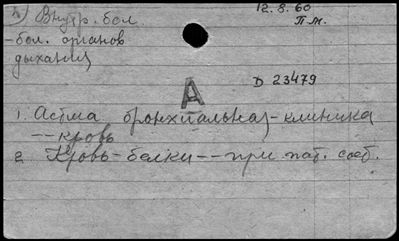 3) Внутр. бол.
12.8.60
П.М.
- бол. органов
дыхания
D 23479
А
1. Астма бронхиальная - клиника
-- кровь
2. Кровь - белки -- при пат. сост.